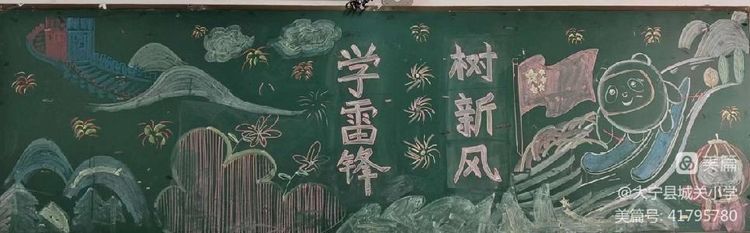 学雷锋
树新风
美篇
@大宁县城关小学
美篇号: 41795780